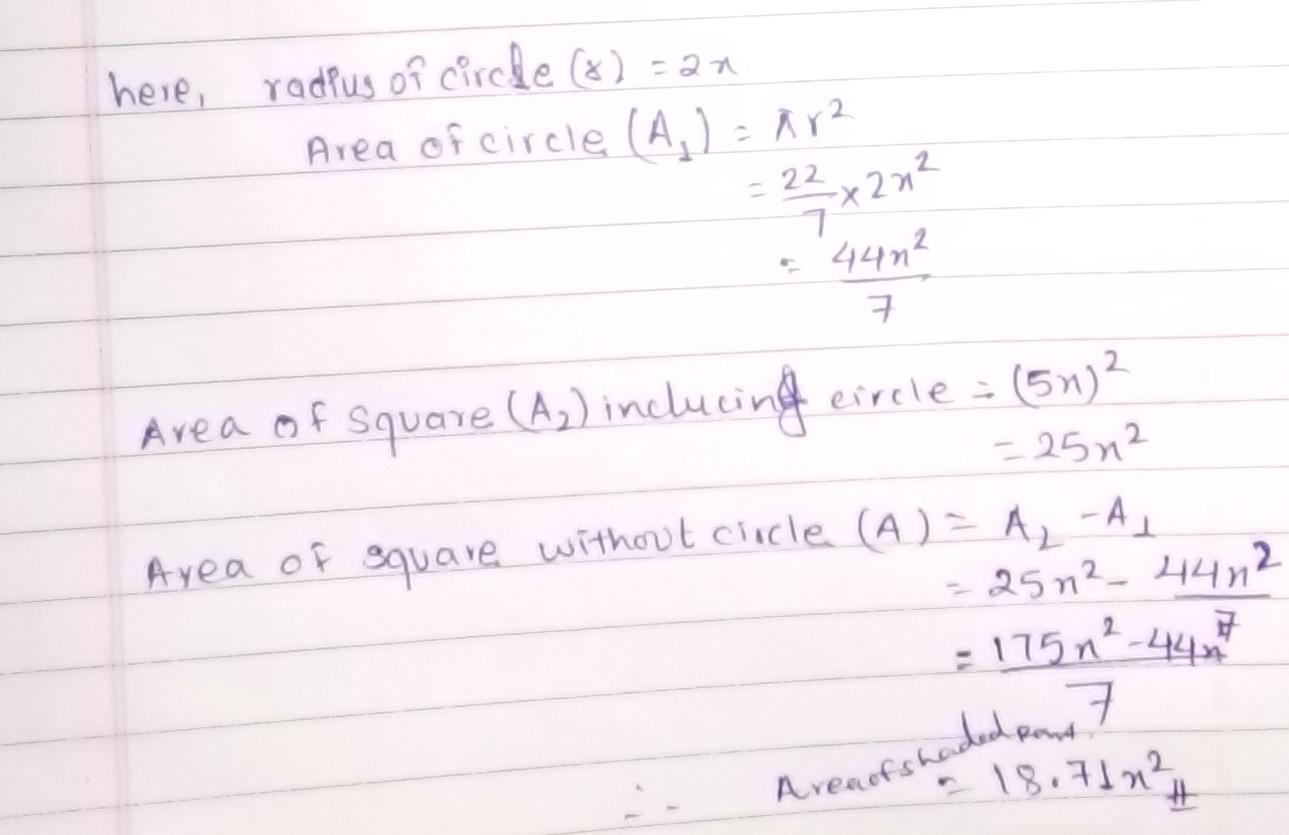 here, radius of circle (r) = 2x
Area of circle (A₁) = πr²
= 22/7 × 2x²
= 44x²/7
Area of square (A₂) inclucing circle = (5x)²
= 25x²
Area of square without circle (A) = A₂ - A₁
= 25x² - 44x²/7
= 175x² - 44x²/7
∴ Area of shaded part = 18.71x²